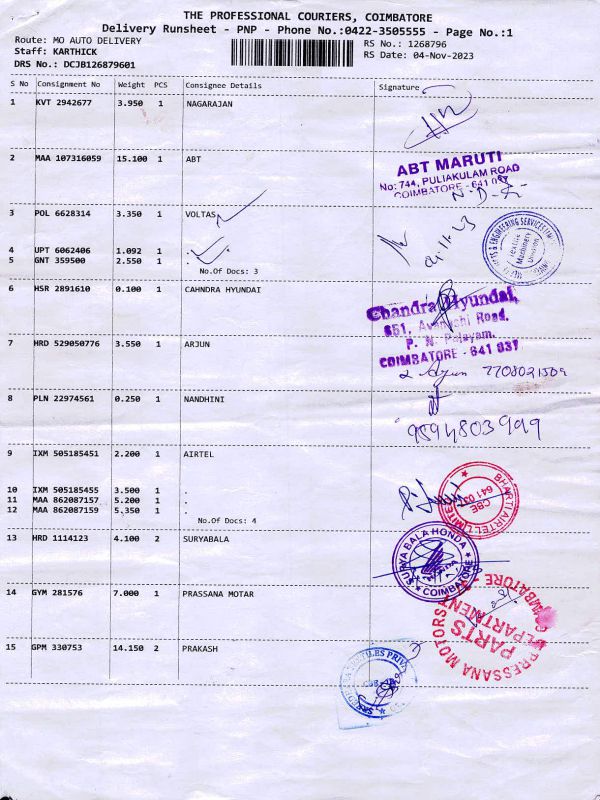 THE PROFESSIONAL COURIERS, COIMBATORE
Delivery Runsheet - PNP - Phone No.:0422-3505555 - Page No.:1
Route: MO AUTO DELIVERY
Staff: KARTHICK
DRS No.: DCJB126879601
RS No.: 1268796
RS Date: 04-Nov-2023
S No Consignment No Weight PCS Consignee Details Signature
1 KVT 2942677 3.950 1 NAGARAJAN
2 MAA 107316059 15.100 1 ABT
ABT MARUTI
No: 744, PULIAKULAM ROAD
COIMBATORE - 641 037
3 POL 6628314 3.350 1 VOLTAS
4 UPT 6062406 1.092 1 .
5 GNT 359500 2.550 1 .
No.Of Docs: 3
6 HSR 2891610 0.100 1 CAHNDRA HYUNDAI
Chandra Hyundai,
P. N. Palayam,
COIMBATORE - 641 037
7 HRD 529050776 3.550 1 ARJUN
Arjun
8 PLN 22974561 0.250 1 NANDHINI
9 IXM 505185451 2.200 1 AIRTEL
10 IXM 505185455 3.500 1 .
11 MAA 862087157 5.200 1 .
12 MAA 862087159 5.350 1 .
No.Of Docs: 4
BHARTI AIRTEL LIMITED
CBE
641 037
13 HRD 1114123 4.100 2 SURYABALA
SURYA BALA HONDA
COIMBATORE
14 GYM 281576 7.000 1 PRASSANA MOTAR
PRESSANA MOTORS
PARTS
DEPARTMENT
COIMBATORE
15 GPM 330753 14.150 2 PRAKASH